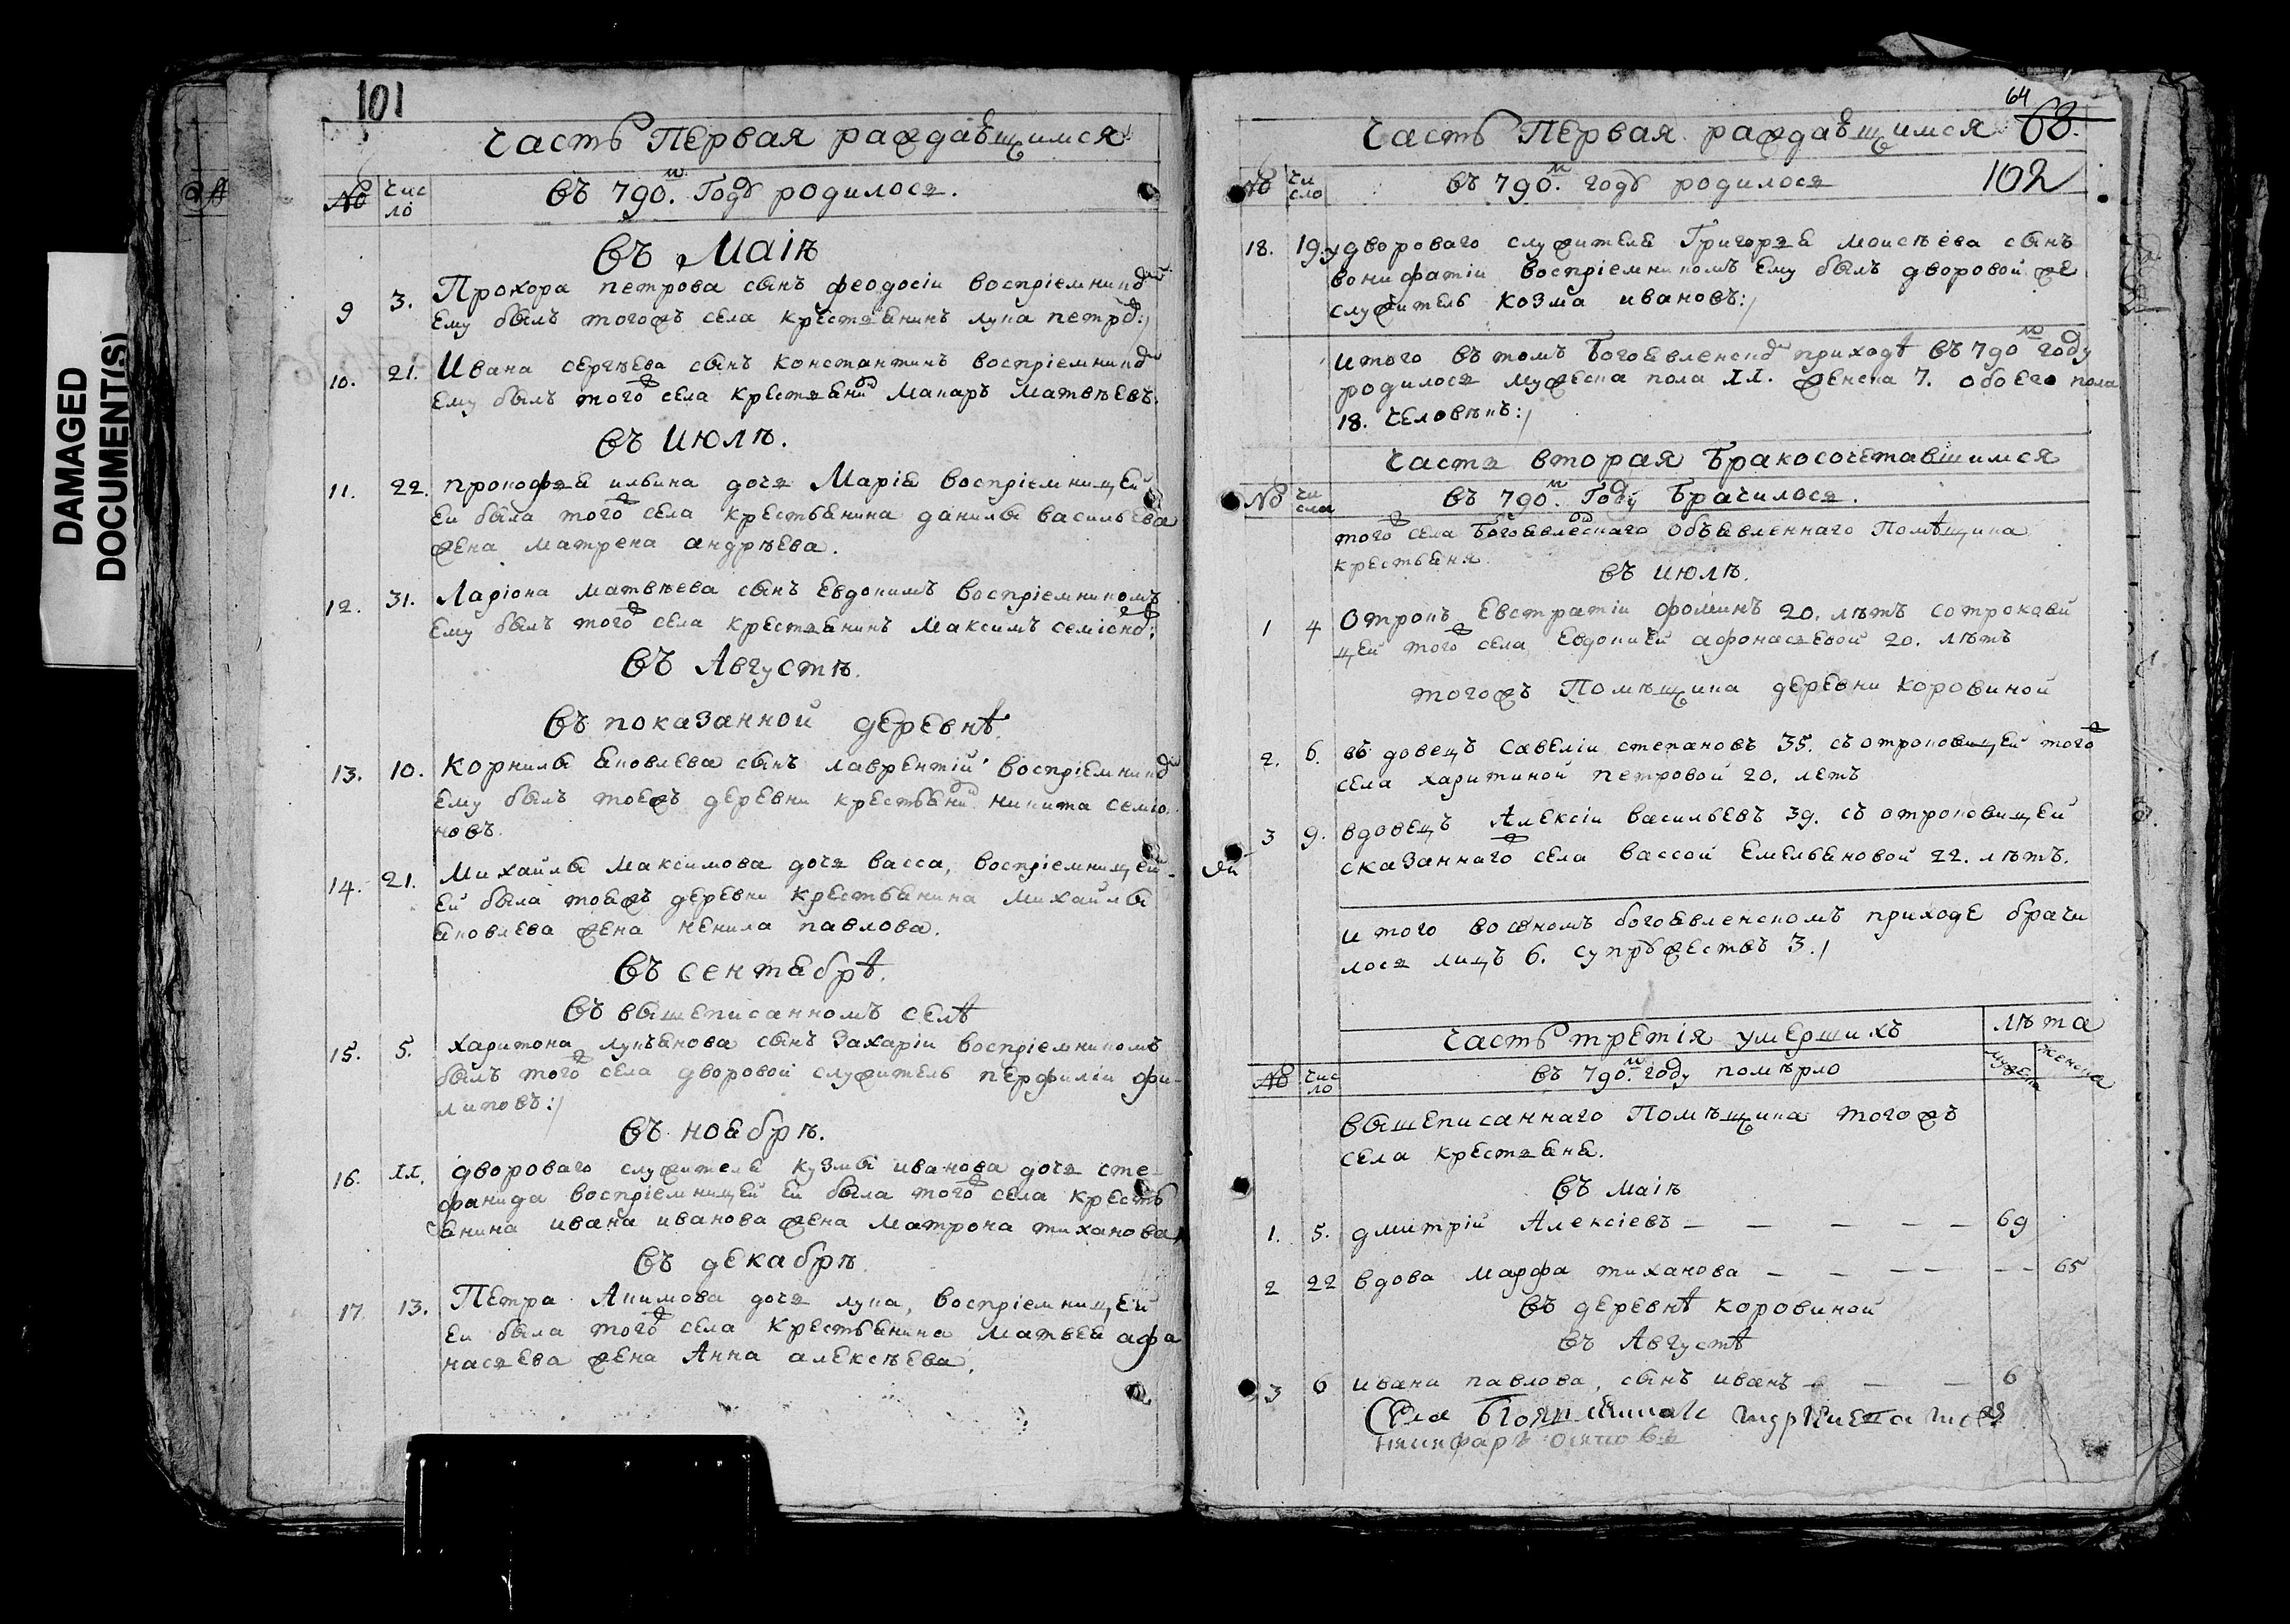 DAMAGED
DOCUMENT(S)
101
Часть Первая раждаѣщимся
№ число
въ 790.м Годъ родилось.
Въ Маіѣ
9 3. Прохора петрова сынъ феодосіи воспріемникомъ
ему былъ тогожъ села крестьянинъ лука петровъ:/
10. 21. Ивана сергѣева сынъ константинъ воспріемникомъ
ему былъ тогожъ села крестьянинъ Макаръ Матвѣевъ.
Въ Июлѣ.
11. 22. прокофья ильина дочь Марія воспріемницей
ей была тогожъ села крестьянина данилы васильева
жена матрена андрѣева.
12. 31. Ларіона матвѣева сынъ Евдокимъ воспріемникомъ
ему былъ тогожъ села крестьянинъ Максимъ семіоновъ:
Въ Августѣ.
Въ показанной деревнѣ.
13. 10. Корнилы яковлева сынъ лаврентій воспріемникомъ
ему былъ тоежъ деревни крестьянинъ никита семіо
новъ.
14. 21. Михайлы Максимова дочь васса, воспріемницей
ей была тояжъ деревни крестьянина Михайлы
яковлева жена ненила павлова.
Въ сентябрѣ.
Въ вышеписанномъ селѣ
15. 5. харитона лукьянова сынъ Захаріи воспріемникомъ
былъ тогожъ села дворовой служитель перфиліи фи-
липовъ:/
Въ ноябрѣ.
16. 11. дворового служителя кузмы иванова дочь сте-
фанида воспріемницей ей была тогожъ села кресть
янина ивана иванова жена Матрона тиханова
Въ декабрѣ.
17 13. Петра Акимова дочь лука, воспріемницей
ей была тогожъ села крестьянина матвея афа
насьева жена Анна алексѣева.
64
68.
Часть Первая раждаѣщимся
102
№ число
въ 790.м годъ родилось
18. 19 удвороваго служителя Григорья моисѣева сынъ
вонифатіи воспріемникомъ ему былъ дворовой же
служитель козма ивановъ:/
итого въ томъ богоявленскомъ приходѣ въ 790м году
родилось мужеска пола 11. женска 7. обоего пола
18. человѣкъ:/
Часть вторая бракосочетавшимся
№ числа
въ 790.м Году Брачилось.
тогожъ села Богоявленскаго объявленнаго Помѣщика
крестьяня
въ июлѣ.
1 4 Отрокъ Евстратіи фоминъ 20. лѣтъ сотрокови
цей тогожъ села Евдокіей афонасьевой 20. лѣтъ
тогожъ Помѣщика деревни коровиной
2. 6. въдовецъ савеліи степановъ 35. съотроковицей тогожъ
села харитиной петровой 20. летъ
3 9. вдовецъ Алексіи васильевъ 39. съ отроковицей
сказаннагожъ села вассой емельяновой 22. лѣтъ.
итого во ономъ богоявленскомъ приходе брачи
лось лицъ 6. супружествъ 3./
Часть третія умершихъ
лѣта
№ число
въ 790.м году померло
мужеска женска
вышеписаннаго Помѣщика тогожъ
села крестьяня.
въ маіѣ
1. 5. дмитрій Алексіевъ — — — — — 69
2 22 вдова марфа тиханова — — — — — — 65
въ деревнѣ коровиной
въ Августѣ
3 6 ивана павлова, сынъ иванъ — — — 6